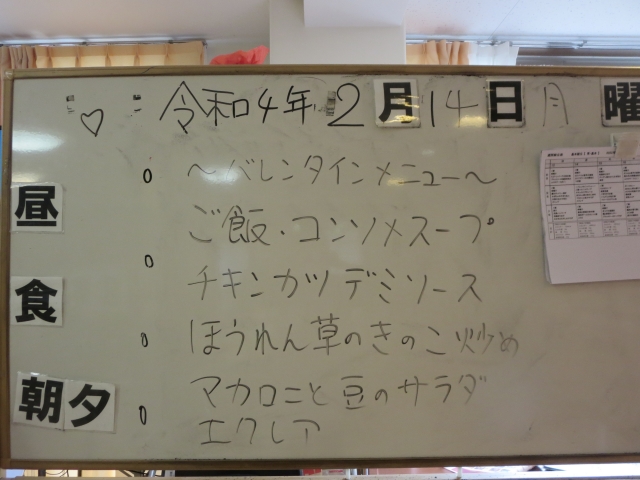 ♡ 令和4年 2月14日 月曜
～バレンタインメニュー～
ご飯・コンソメスープ
チキンカツデミソース
ほうれん草のきのこ炒め
マカロニと豆のサラダ
エクレア
昼
食
朝夕